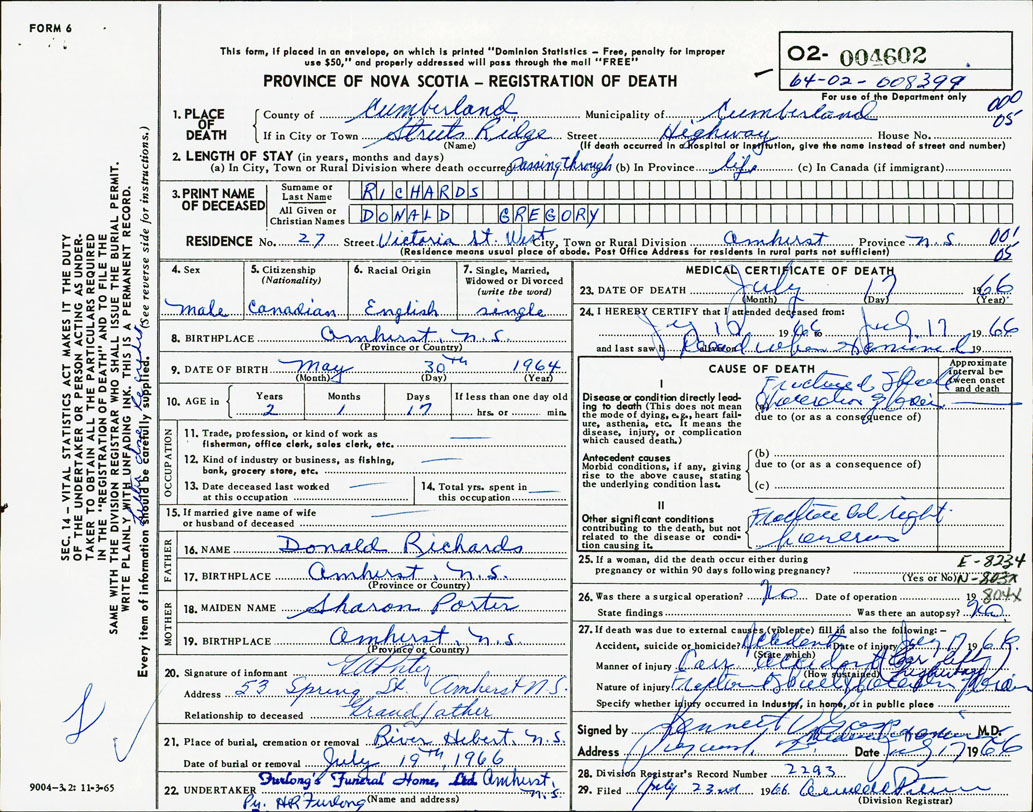 FORM 6
This form, if placed in an envelope, on which is printed "Dominion Statistics – Free, penalty for improper
use $50," and properly addressed will pass through the mail "FREE"
PROVINCE OF NOVA SCOTIA – REGISTRATION OF DEATH
O2- 004602
64-02-008399
For use of the Department only
000
05
1. PLACE OF DEATH
County of Cumberland Municipality of Cumberland
If in City or Town Streets Ridge Street Highway House No.
(Name) (If death occurred in a hospital or institution, give the name instead of street and number)
2. LENGTH OF STAY (in years, months and days)
(a) In City, Town or Rural Division where death occurred passing through (b) In Province life (c) In Canada (if immigrant)
3. PRINT NAME OF DECEASED
Surname or Last Name RICHARDS
All Given or Christian Names DONALD GREGORY
RESIDENCE No. 27 Street Victoria St. West City, Town or Rural Division Amherst Province N.S. 001
(Residence means usual place of abode. Post Office Address for residents in rural parts not sufficient) 05
4. Sex male
5. Citizenship (Nationality) Canadian
6. Racial Origin English
7. Single, Married, Widowed or Divorced (write the word) single
8. BIRTHPLACE Amherst, N.S.
(Province or Country)
9. DATE OF BIRTH May 30th 1964
(Month) (Day) (Year)
10. AGE in Years 2 Months 1 Days 17 If less than one day old hrs. or min.
OCCUPATION
11. Trade, profession, or kind of work as fisherman, office clerk, sales clerk, etc.
12. Kind of industry or business, as fishing, bank, grocery store, etc.
13. Date deceased last worked at this occupation
14. Total yrs. spent in this occupation
15. If married give name of wife or husband of deceased
FATHER
16. NAME Donald Richards
17. BIRTHPLACE Amherst, N.S.
(Province or Country)
MOTHER
18. MAIDEN NAME Sharon Porter
19. BIRTHPLACE Amherst, N.S.
(Province or Country)
20. Signature of informant
Address 53 Spring St. Amherst N.S.
Relationship to deceased Grandfather
21. Place of burial, cremation or removal River Hebert, N.S.
Date of burial or removal July 19th, 1966
22. UNDERTAKER Furlong's Funeral Home, Ltd. Amherst, N.S.
Per: H.R. Furlong (Name and address)
MEDICAL CERTIFICATE OF DEATH
23. DATE OF DEATH July 17 1966
(Month) (Day) (Year)
24. I HEREBY CERTIFY that I attended deceased from:
July 17 1966 to July 17 1966
and last saw h Dead when examined 19
CAUSE OF DEATH
Approximate interval between onset and death
I
Disease or condition directly leading to death (This does not mean the mode of dying, e.g., heart failure, asthenia, etc. It means the disease, injury, or complication which caused death.)
(a) Fractured Skull
Laceration of brain
due to (or as a consequence of)
Antecedent causes
Morbid conditions, if any, giving rise to the above cause, stating the underlying condition last.
(b)
due to (or as a consequence of)
(c)
II
Other significant conditions
contributing to the death, but not related to the disease or condition causing it.
Fractured right
humerus
25. If a woman, did the death occur either during
pregnancy or within 90 days following pregnancy?
(Yes or No)
E-8234
N-803x
804x
26. Was there a surgical operation? No Date of operation 19
State findings Was there an autopsy? No
27. If death was due to external causes (violence) fill in also the following: –
Accident, suicide or homicide? Accident Date of injury July 17 1966
(State which)
Manner of injury Car accident Car left highway
(How sustained)
Nature of injury Fracture of skull Laceration brain
Specify whether injury occurred in industry, in home, or in public place
Signed by M.D.
Address Date July 17 1966
28. Division Registrar's Record Number 2293
29. Filed July 23rd 1966
(Division Registrar)
SEC. 14 – VITAL STATISTICS ACT MAKES IT THE DUTY
OF THE UNDERTAKER OR PERSON ACTING AS UNDER-
TAKER TO OBTAIN ALL THE PARTICULARS REQUIRED
IN THE "REGISTRATION OF DEATH" AND TO FILE THE
SAME WITH THE DIVISION REGISTRAR WHO SHALL ISSUE THE BURIAL PERMIT.
WRITE PLAINLY WITH UNFADING INK. THIS IS A PERMANENT RECORD.
Every item of information should be carefully supplied. (See reverse side for instructions.)
9004-3.2: 11-3-65